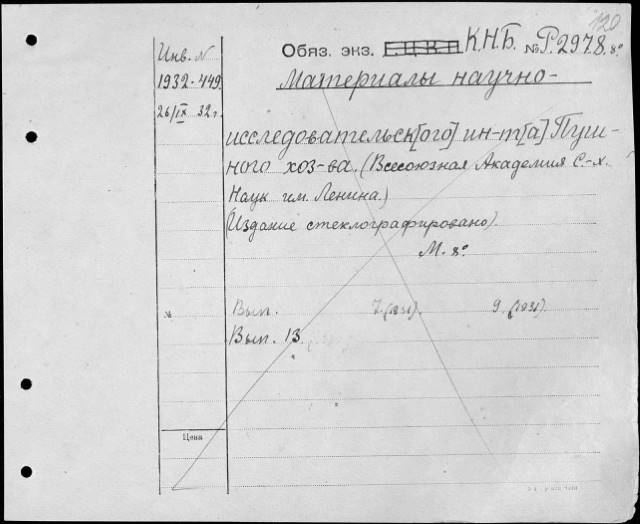 120
Инв. N
1932-449
26/IX 32г.
Обяз. экз. Г.Ц.К.П К.Н.Б. № Р.2978. 8°
Материалы научно-
исследовательск[ого] ин-т[а] Пуш-
ного хоз-ва. (Всесоюзная Академия С-х.
Наук им. Ленина.)
(Издание стеклографировано).
М. 8°
№ Вып. 7.(1931). 9.(1931).
Вып. 13.
Цена